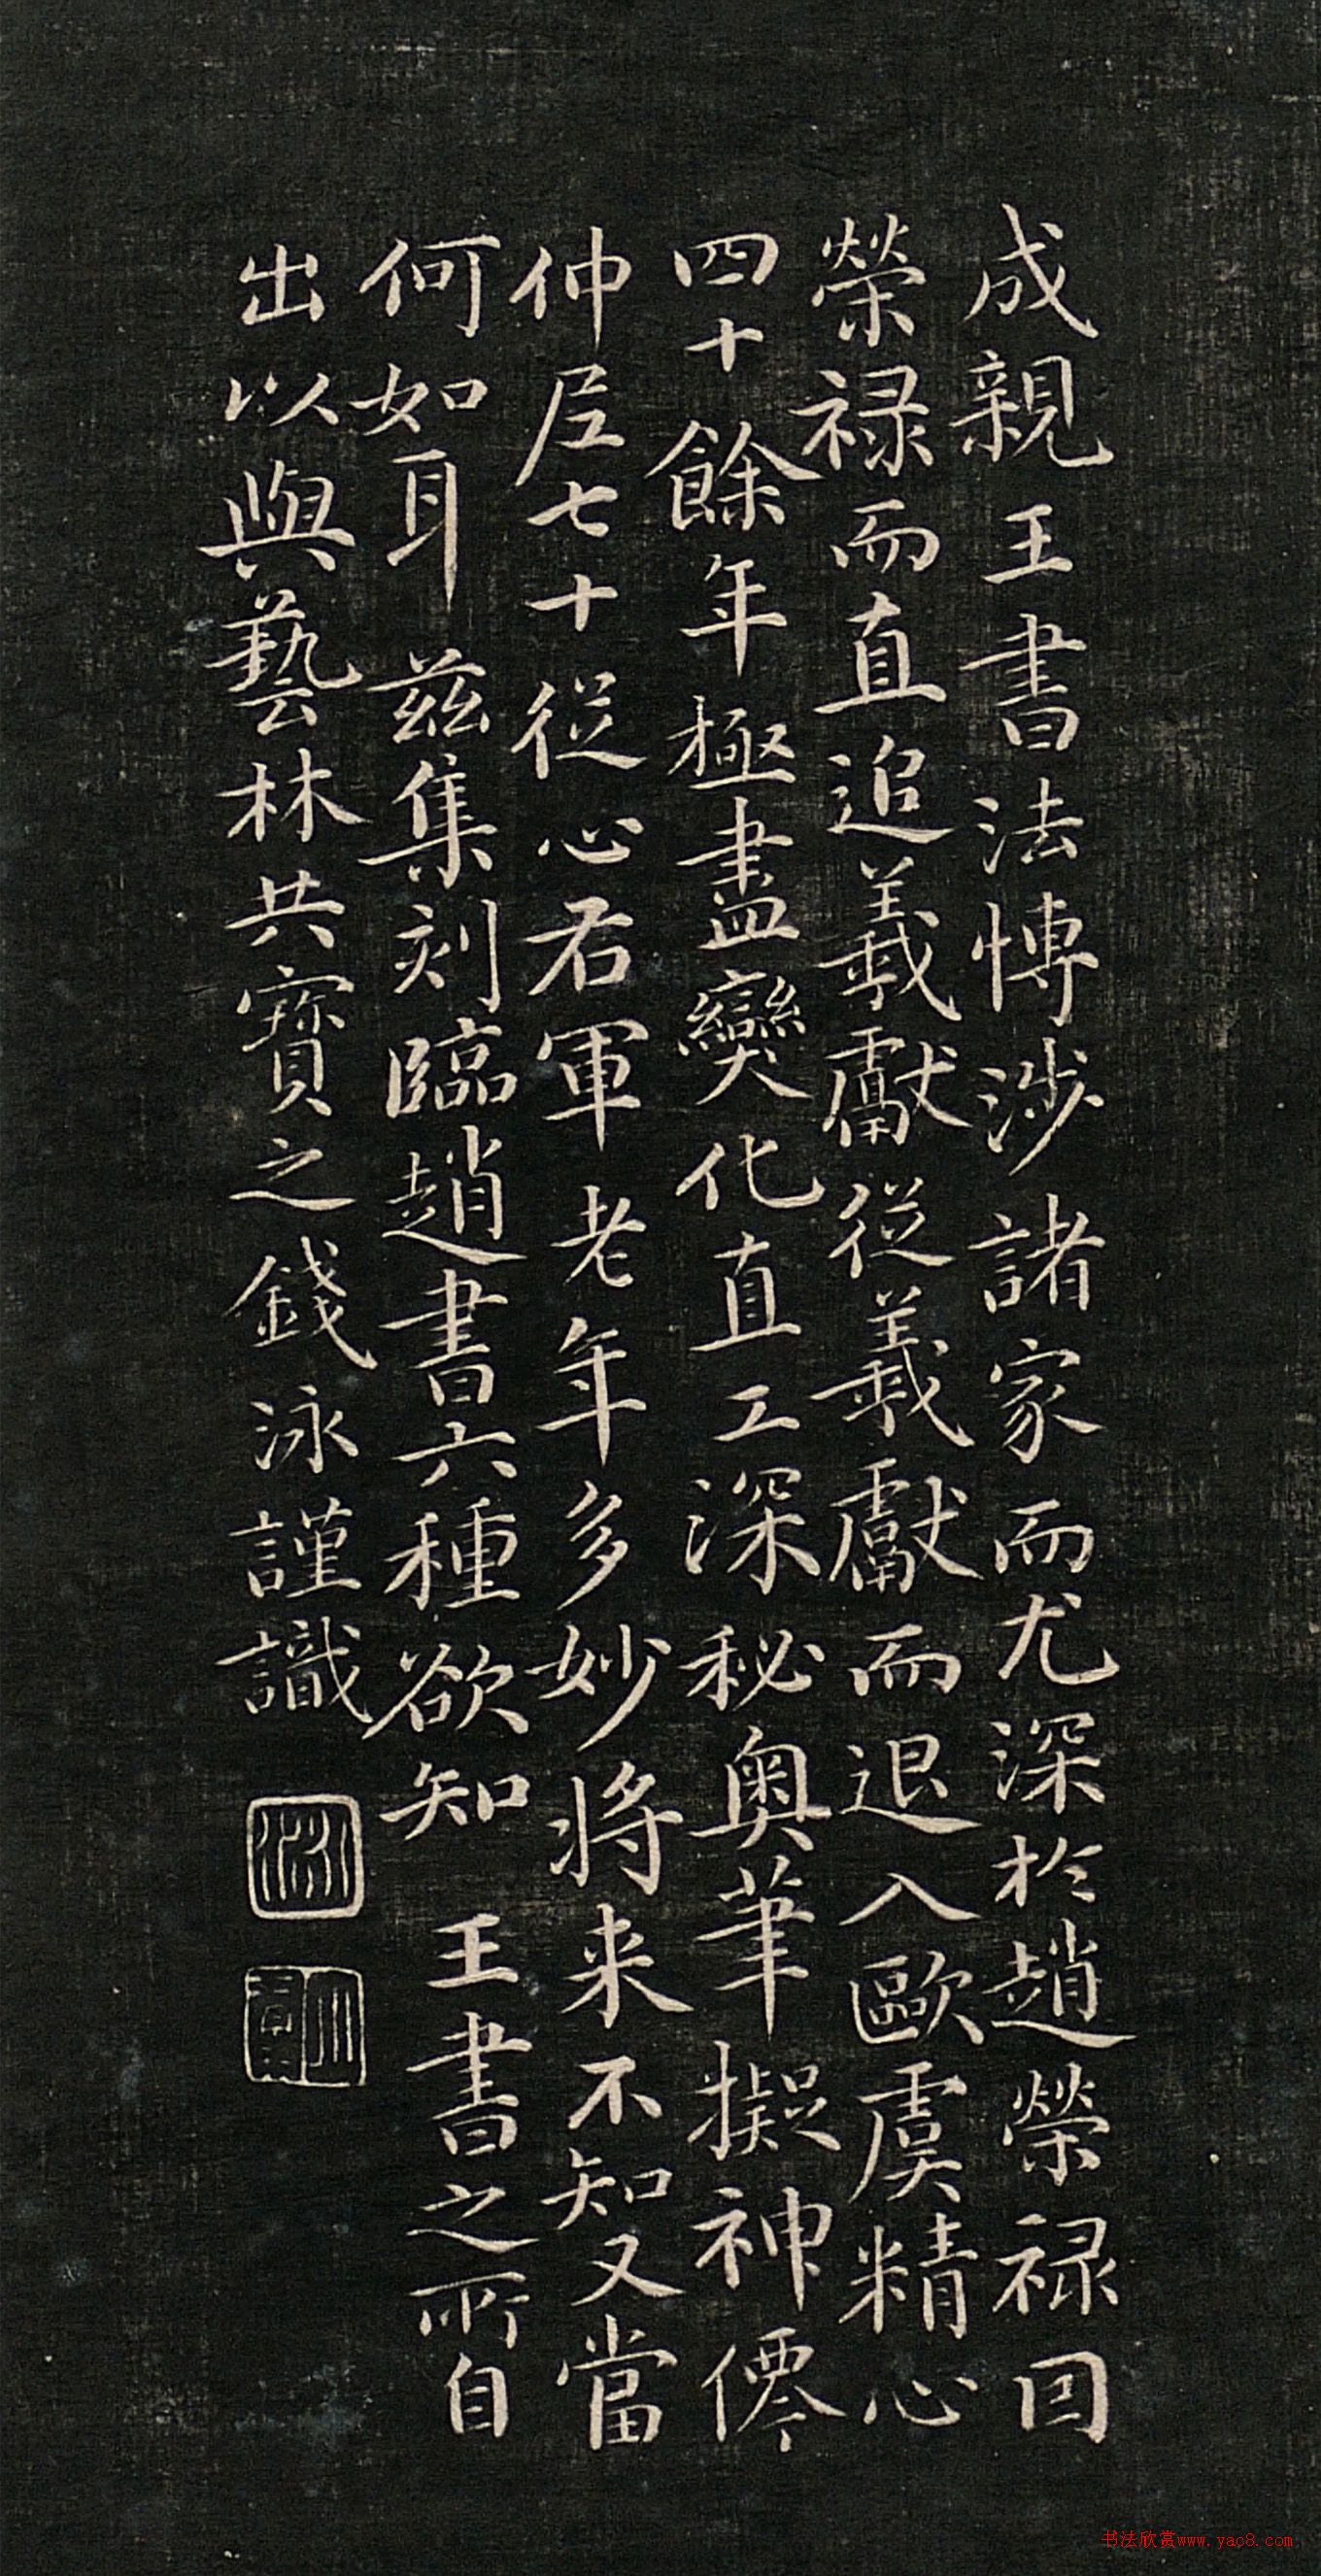 成親王書法愽涉諸家而尤深於趙榮禄回
榮禄而直追羲獻從羲獻而退入歐虞精心
四十餘年極盡變化直工深秘奥筆擬神僊
仲尼七十從心右軍老年多妙將来不知又當
何如耳茲集刻臨趙書六種欲知王書之所自
出以與藝林共寳之錢泳謹識
书法欣赏www.yac8.com